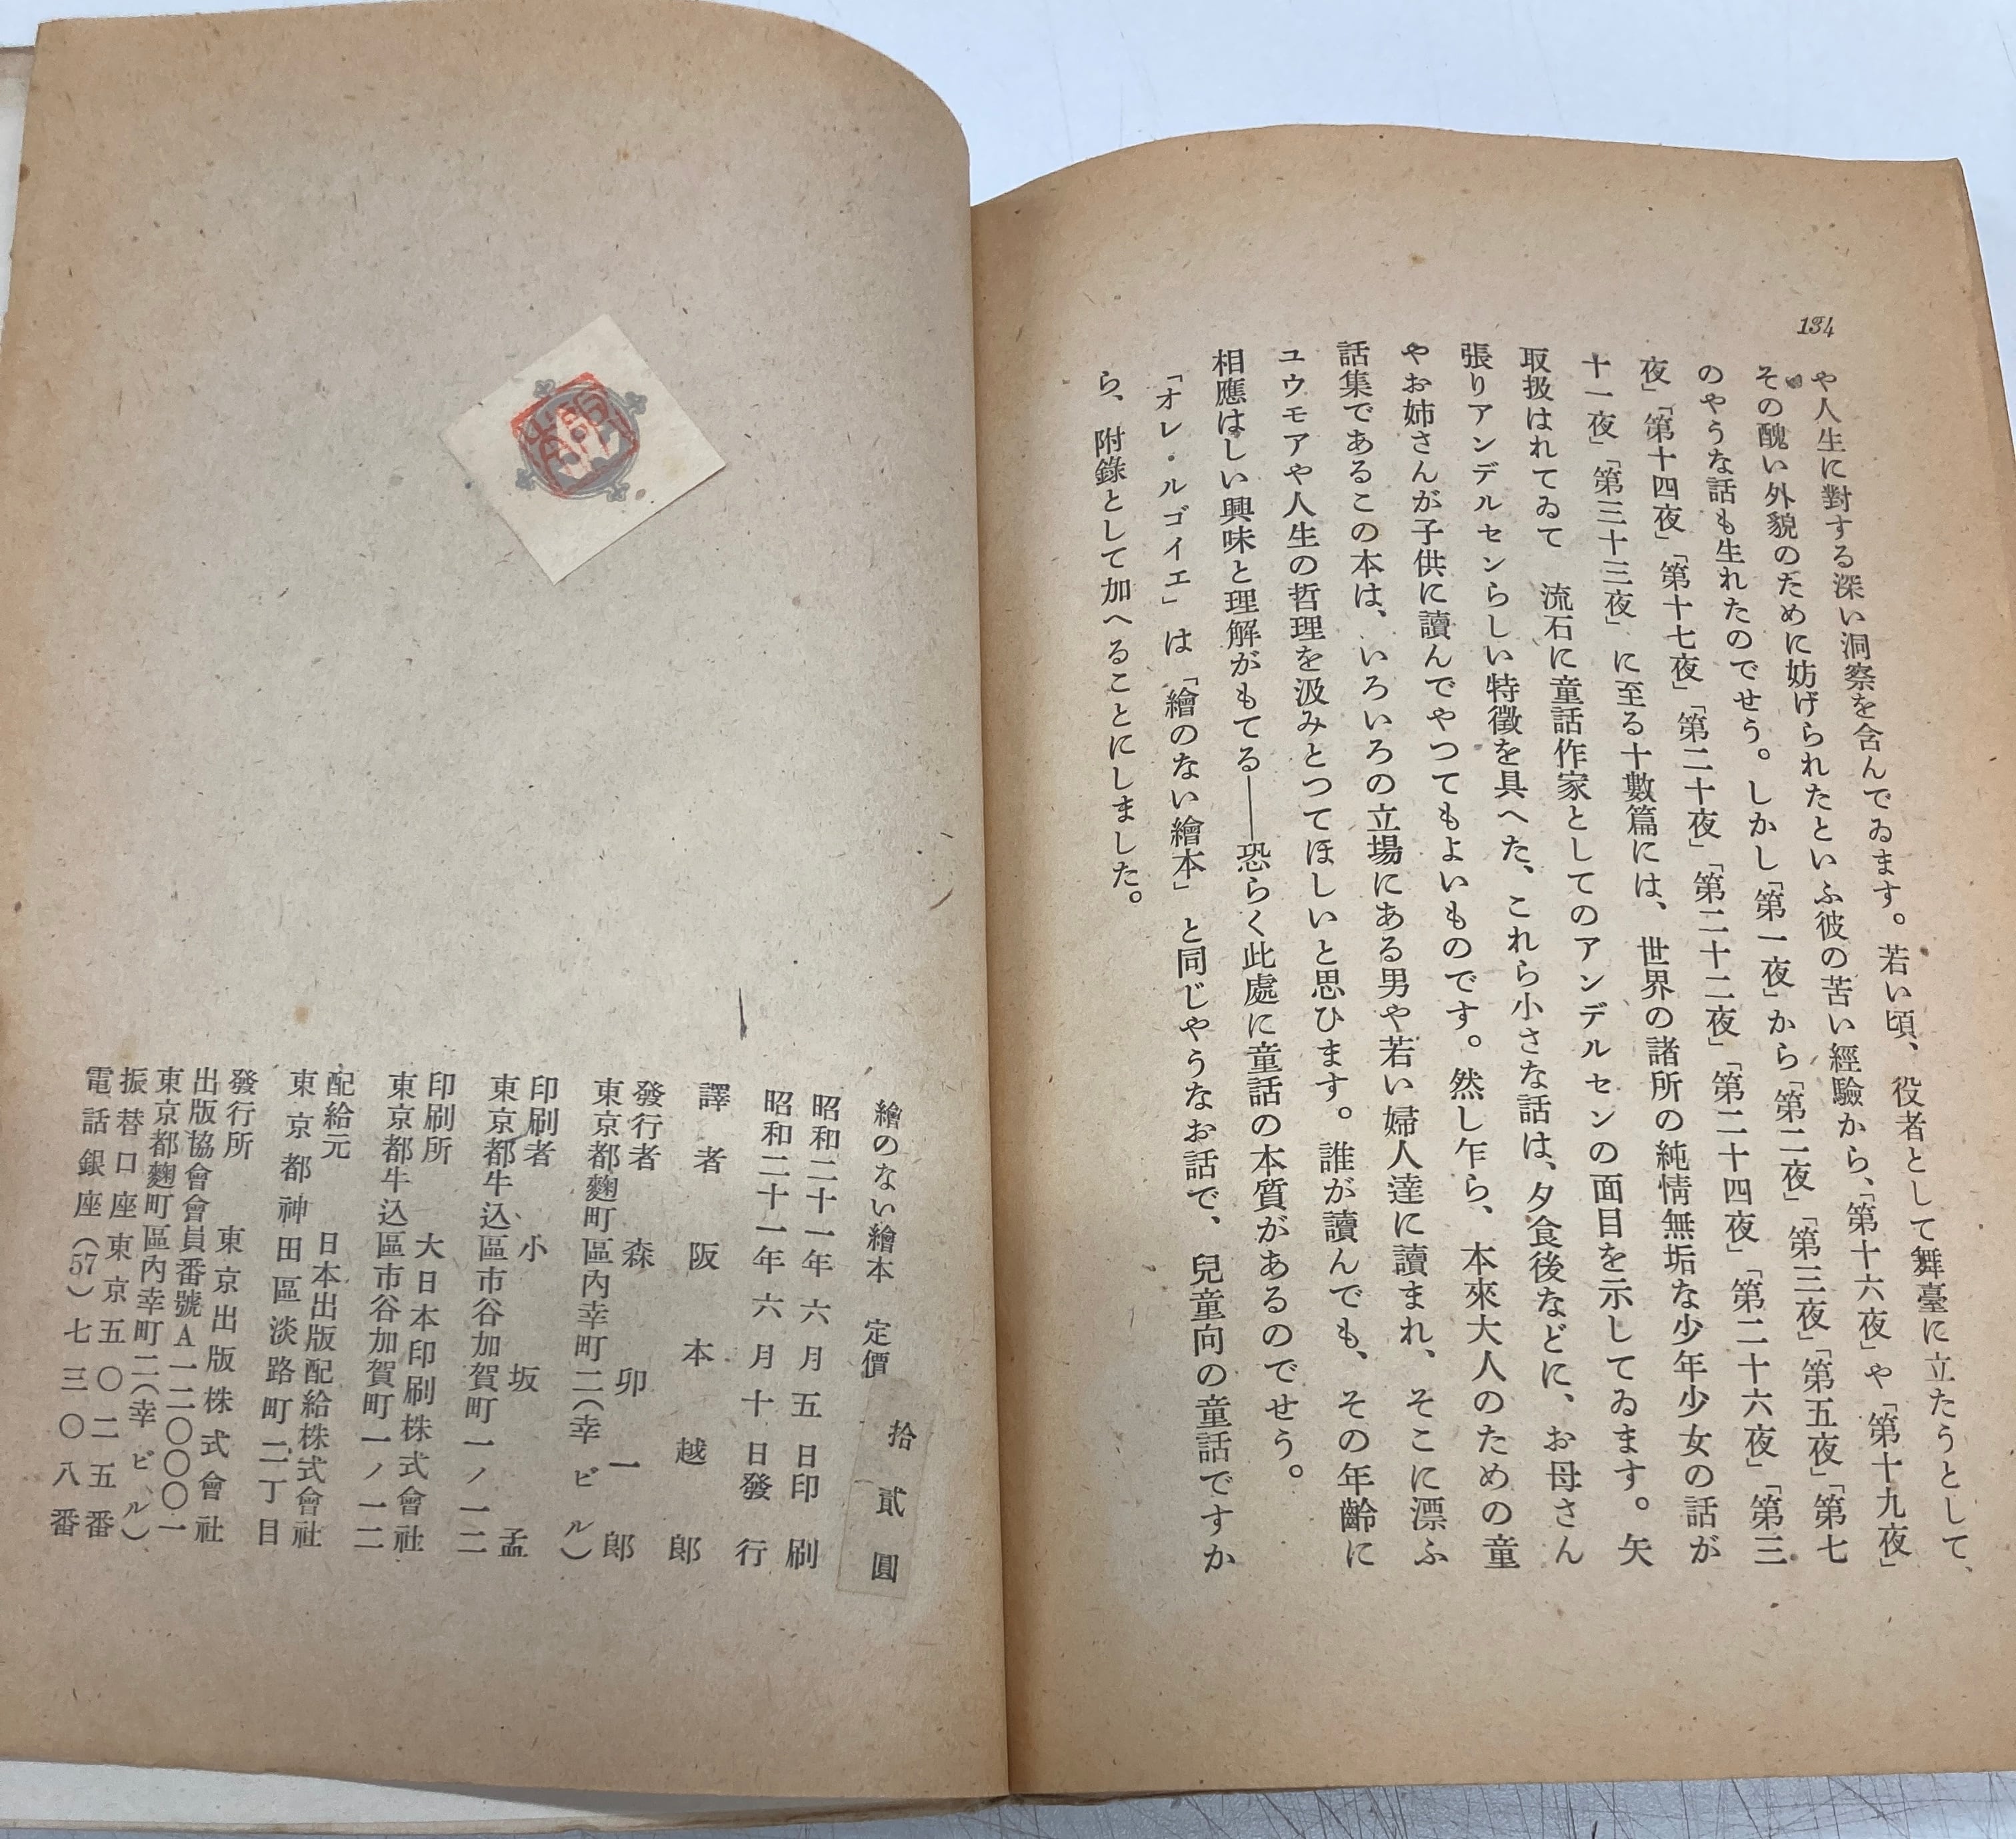 134
や人生に對する深い洞察を含んでゐます。若い頃、役者として舞臺に立たうとして、
その醜い外貌のために妨げられたといふ彼の苦い經驗から、「第十六夜」や「第十九夜」
のやうな話も生れたのでせう。しかし「第一夜」から「第二夜」「第三夜」「第五夜」「第七
夜」「第十四夜」「第十七夜」「第二十夜」「第二十二夜」「第二十四夜」「第二十六夜」「第三
十一夜」「第三十三夜」に至る十數篇には、世界の諸所の純情無垢な少年少女の話が
取扱はれてゐて 流石に童話作家としてのアンデルセンの面目を示してゐます。矢
張りアンデルセンらしい特徴を具へた、これら小さな話は、夕食後などに、お母さん
やお姉さんが子供に讀んでやつてもよいものです。然し乍ら、本來大人のための童
話集であるこの本は、いろいろの立場にある男や若い婦人達に讀まれ、そこに漂ふ
ユウモアや人生の哲理を汲みとつてほしいと思ひます。誰が讀んでも、その年齡に
相應はしい興味と理解がもてる――恐らく此處に童話の本質があるのでせう。
「オレ・ルゴイエ」は「繪のない繪本」と同じやうなお話で、兒童向の童話ですか
ら、附錄として加へることにしました。
繪のない繪本 定價 拾貳圓
昭和二十一年六月五日印刷
昭和二十一年六月十日發行
譯者 阪本越郎
發行者 森卯一郎
東京都麴町區內幸町二(幸ビル)
印刷者 小坂孟
東京都牛込區市谷加賀町一ノ一二
印刷所 大日本印刷株式會社
東京都牛込區市谷加賀町一ノ一二
配給元 日本出版配給株式會社
東京都神田區淡路町二丁目
發行所 東京出版株式會社
出版協會會員番號A一二〇〇〇一
東京都麴町區內幸町二(幸ビル)
振替口座東京五〇二五番
電話銀座(57)七三〇八番